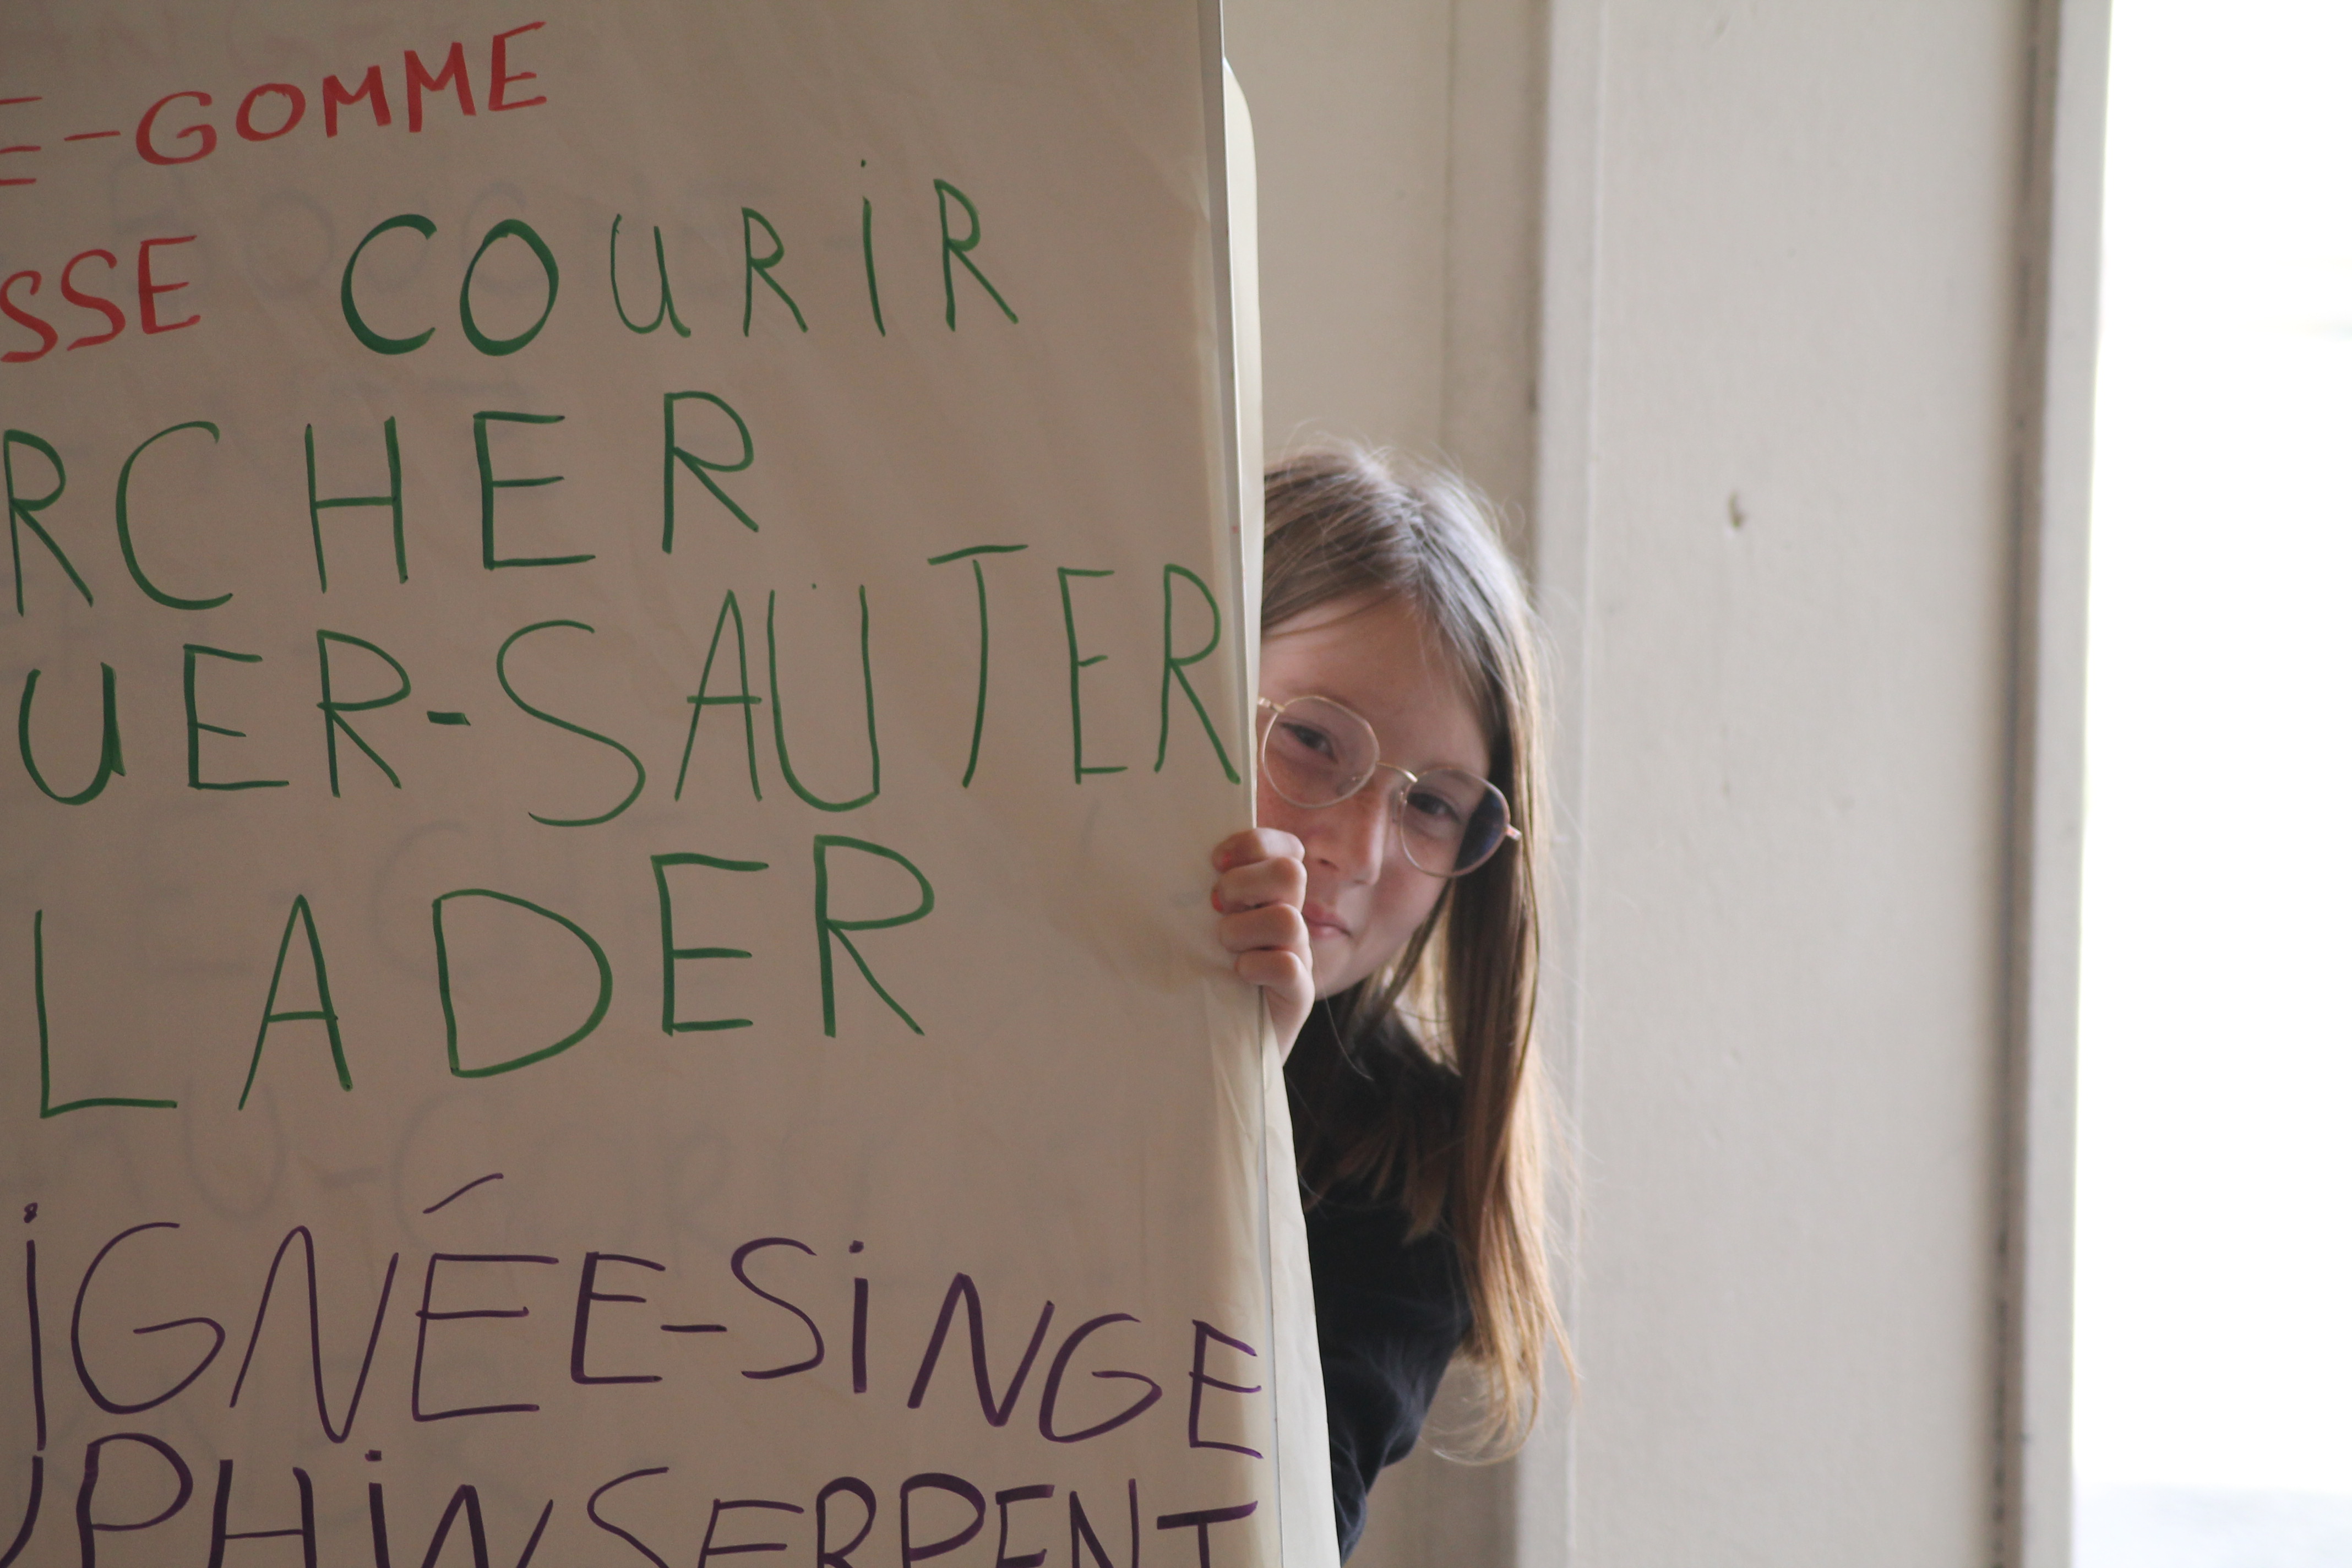 E-GOMME
SSE COURIR
RCHER
UER-SAUTER
LADER
IGNÉE-SINGE
PHIN SERPENT